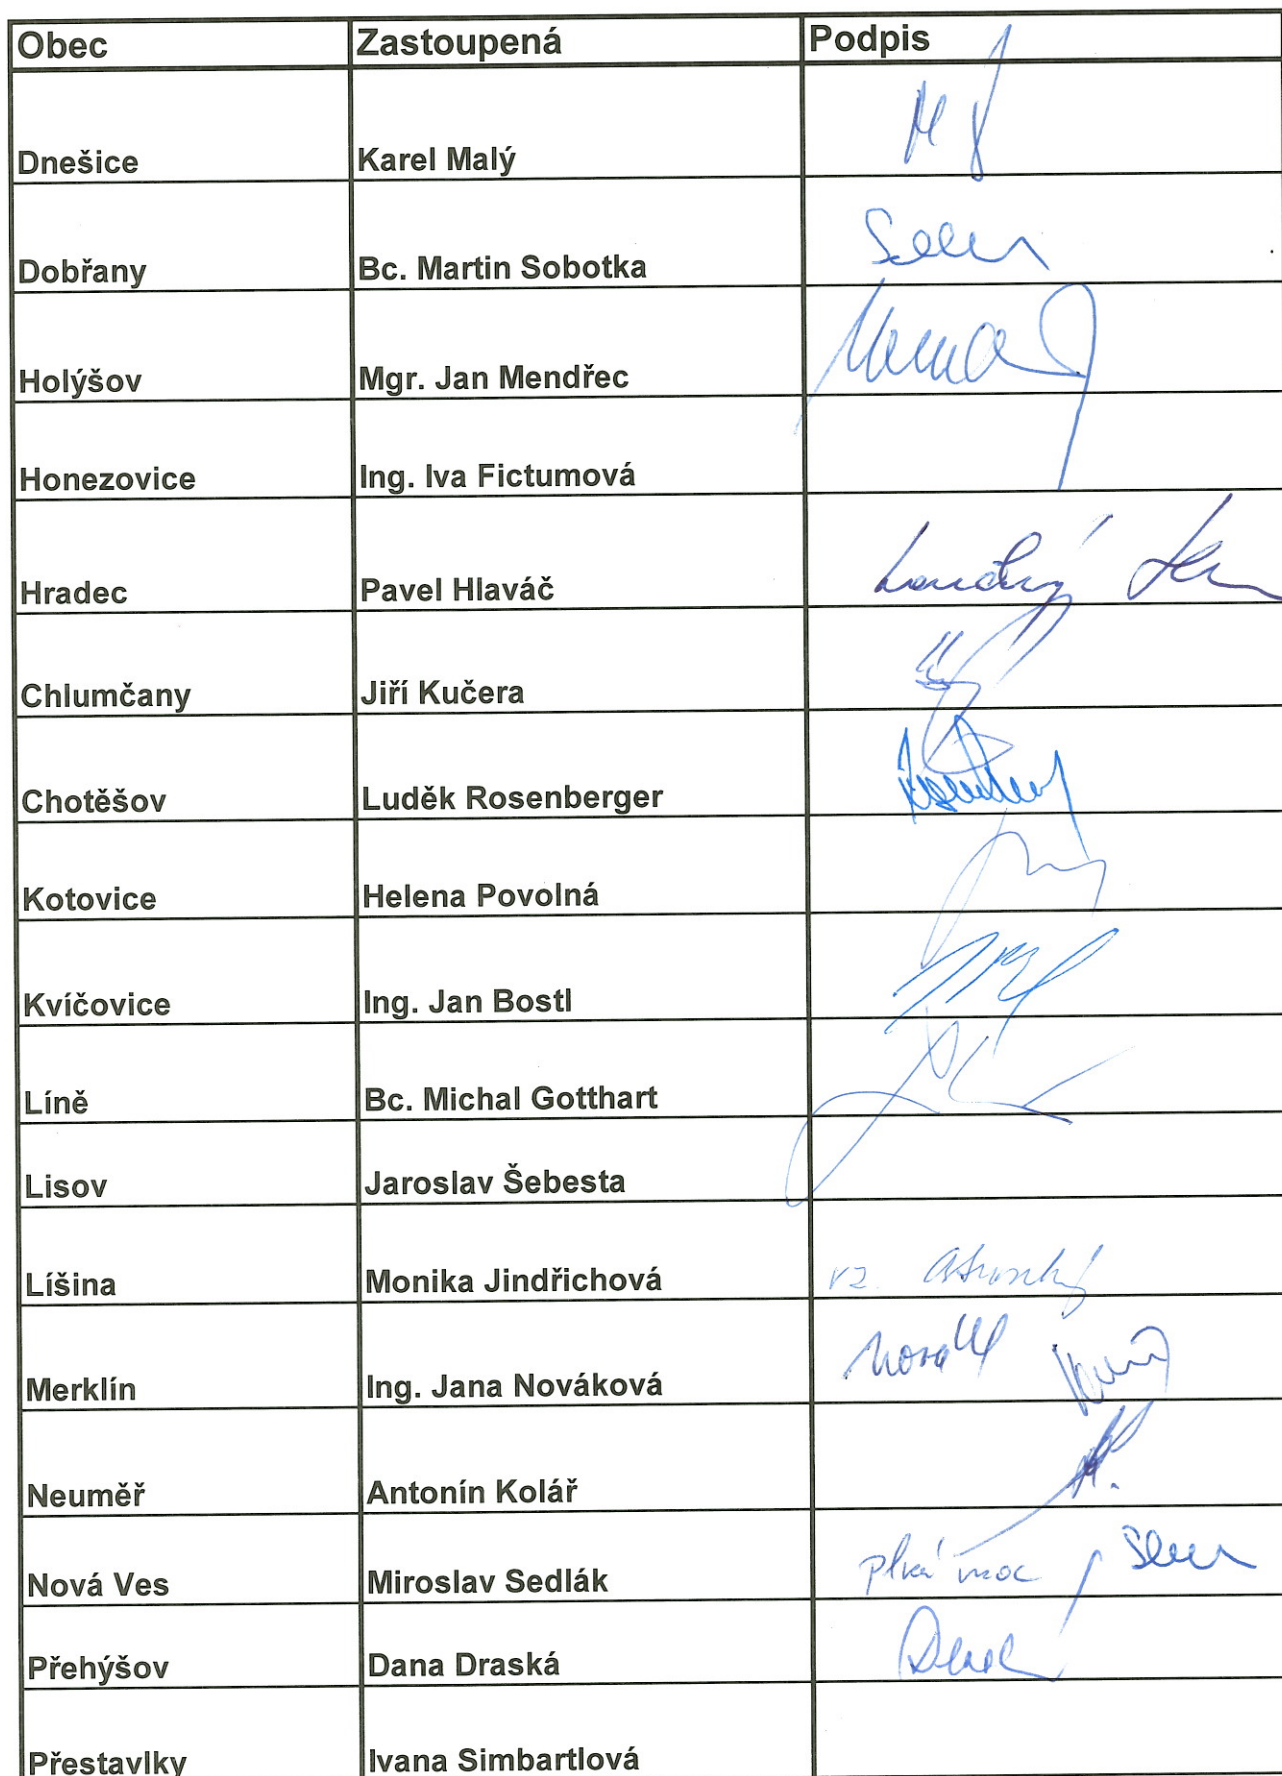 Obec Zastoupená Podpis
Dnešice Karel Malý
Dobřany Bc. Martin Sobotka
Holýšov Mgr. Jan Mendřec
Honezovice Ing. Iva Fictumová
Hradec Pavel Hlaváč
Chlumčany Jiří Kučera
Chotěšov Luděk Rosenberger
Kotovice Helena Povolná
Kvíčovice Ing. Jan Bostl
Líně Bc. Michal Gotthart
Lisov Jaroslav Šebesta
Líšina Monika Jindřichová vz.
Merklín Ing. Jana Nováková
Neuměř Antonín Kolář
Nová Ves Miroslav Sedlák plná moc
Přehýšov Dana Draská
Přestavlky Ivana Simbartlová